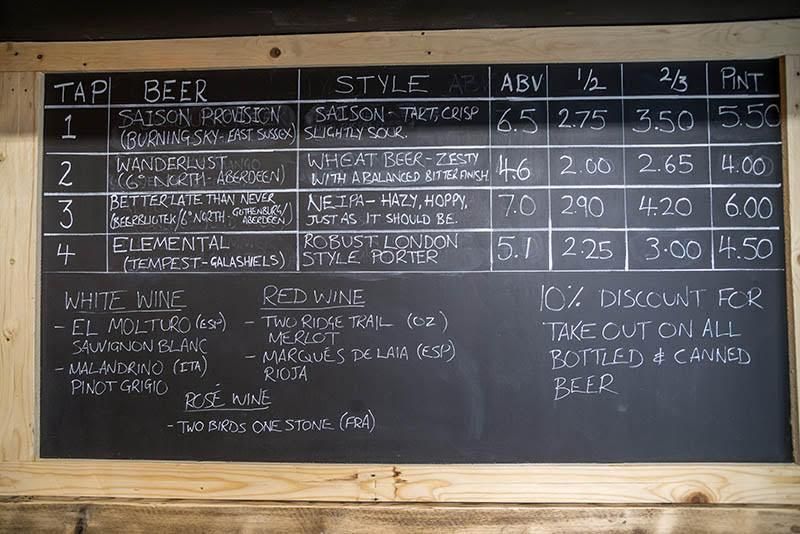 TAP BEER STYLE ABV 1/2 2/3 PINT
1 SAISON PROVISION SAISON - TART, CRISP 6.5 2.75 3.50 5.50
(BURNING SKY - EAST SUSSEX) SLIGHTLY SOUR.
2 WANDERLUST WHEAT BEER - ZESTY 4.6 2.00 2.65 4.00
(6° NORTH - ABERDEEN) WITH A BALANCED BITTER FINISH
3 BETTER LATE THAN NEVER NEIPA - HAZY, HOPPY, 7.0 2.90 4.20 6.00
(BEERBLIOTEK/6° NORTH - GOTHENBURG/ JUST AS IT SHOULD BE.
ABERDEEN)
4 ELEMENTAL ROBUST LONDON 5.1 2.25 3.00 4.50
(TEMPEST - GALASHIELS) STYLE PORTER
WHITE WINE
- EL MOLTURO (ESP)
SAUVIGNON BLANC
- MALANDRINO (ITA)
PINOT GRIGIO
RED WINE
- TWO RIDGE TRAIL (OZ)
MERLOT
- MARQUÉS DE LAIA (ESP)
RIOJA
ROSÉ WINE
- TWO BIRDS ONE STONE (FRA)
10% DISCOUNT FOR
TAKE OUT ON ALL
BOTTLED & CANNED
BEER